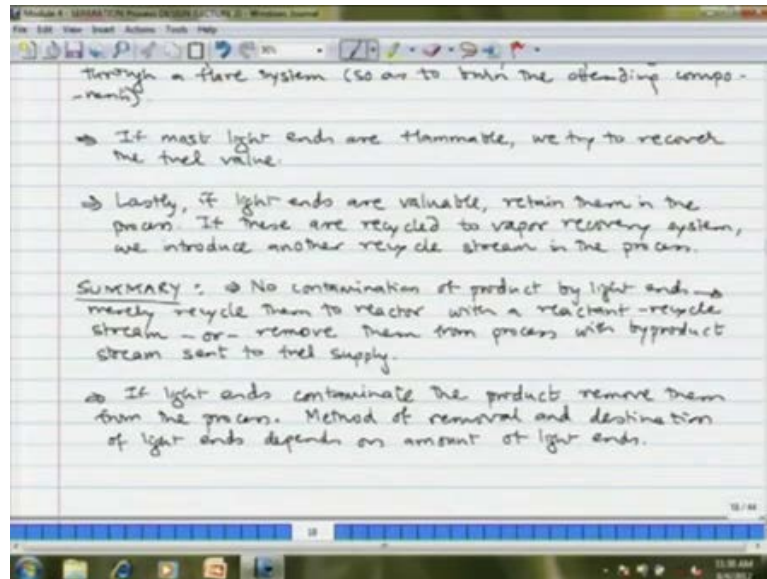 Module 4 - SEPARATION Process DESIGN (LECTURE 2) - Windows Journal
File Edit View Insert Actions Tools Help
through a flare system (so as to burn the offending compo-
-nents)
⇒ If most light ends are flammable, we try to recover
the fuel value.
⇒ Lastly, if light ends are valuable, retain them in the
process. If these are recycled to vapor recovery system,
we introduce another recycle stream in the process.
SUMMARY : ⇒ No contamination of product by light ends →
merely recycle them to reactor with a reactant-recycle
stream - or - remove them from process with byproduct
stream sent to fuel supply.
⇒ If light ends contaminate the product, remove them
from the process. Method of removal and destination
of light ends depends on amount of light ends.
18
11:30 AM